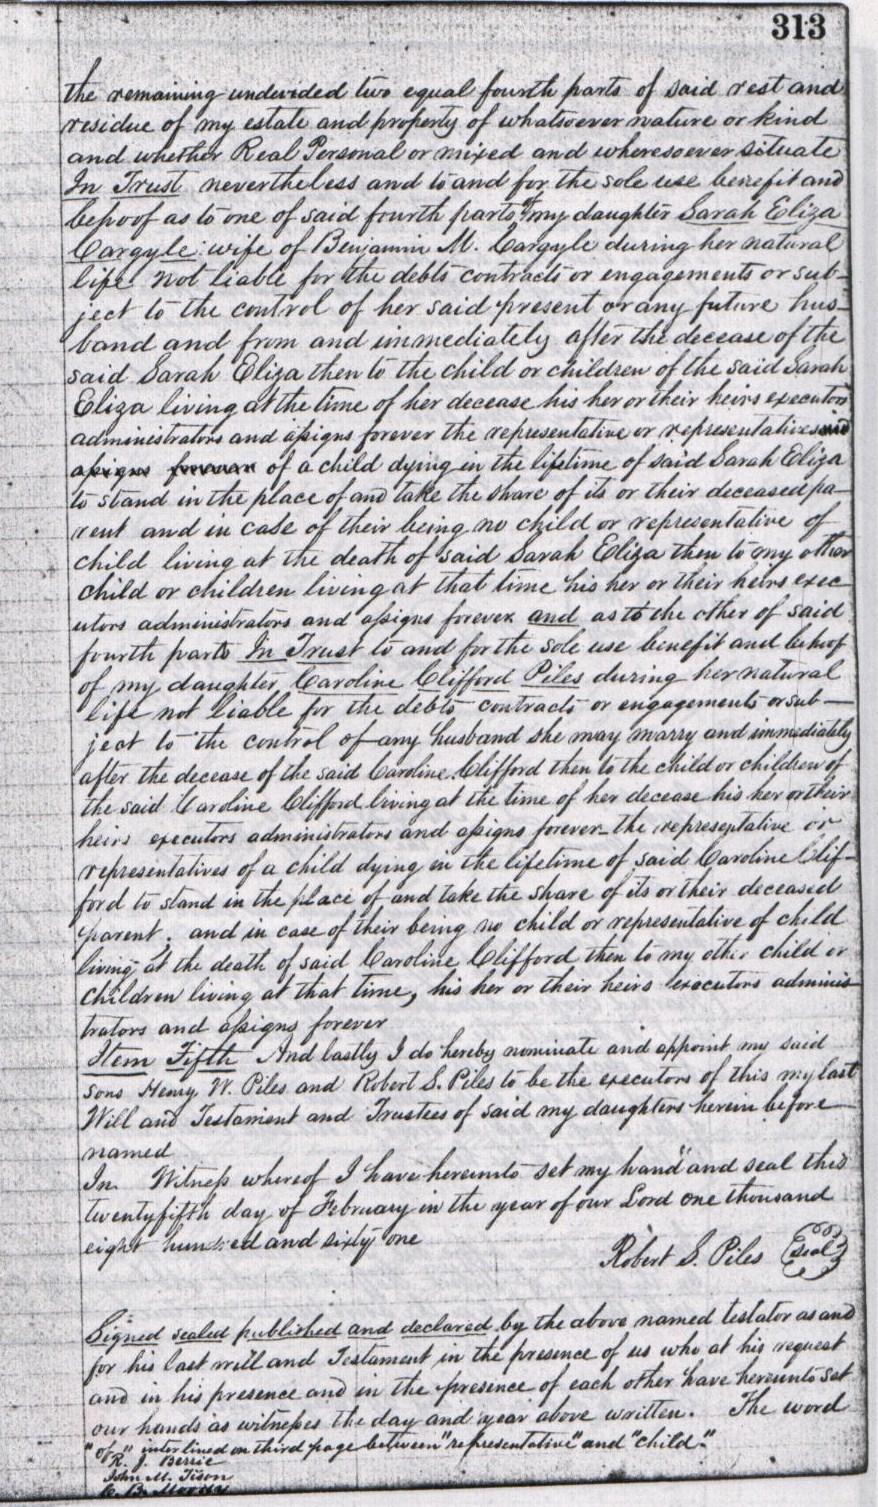 313
the remaining undivided two equal fourth parts of said rest and
residue of my estate and property of whatsoever nature or kind
and whether Real Personal or mixed and wheresoever situate
In Trust nevertheless and to and for the sole use benefit and
behoof as to one of said fourth parts of my daughter Sarah Eliza
Cargyle wife of Benjamin M. Cargyle during her natural
life not liable for the debts contracts or engagements or sub-
ject to the control of her said present or any future hus-
band and from and immediately after the decease of the
said Sarah Eliza then to the child or children of the said Sarah
Eliza living at the time of her decease his her or their heirs executors
administrators and assigns forever the representative or representatives and
assigns forever of a child dying in the lifetime of said Sarah Eliza
to stand in the place of and take the share of its or their deceased pa-
rent and in case of their being no child or representative of
child living at the death of said Sarah Eliza then to my other
child or children living at that time his her or their heirs exec
utors administrators and assigns forever and as to the other of said
fourth parts In Trust to and for the sole use benefit and behoof
of my daughter Caroline Clifford Piles during her natural
life not liable for the debts contracts or engagements or sub-
ject to the control of any husband she may marry and immediately
after the decease of the said Caroline Clifford then to the child or children of
the said Caroline Clifford living at the time of her decease his her or their
heirs executors administrators and assigns forever the representative or
representatives of a child dying in the lifetime of said Caroline Clif-
ford to stand in the place of and take the share of its or their deceased
parent. and in case of their being no child or representative of child
living at the death of said Caroline Clifford then to my other child or
children living at that time, his her or their heirs executors adminis
trators and assigns forever
Item Fifth And lastly I do hereby nominate and appoint my said
sons Henry W. Piles and Robert S. Piles to be the executors of this my last
Will and Testament and Trustees of said my daughters herein before
named
In Witness whereof I have hereunto set my hand and seal this
twentyfifth day of February in the year of our Lord one thousand
eight hundred and sixty one
Robert S. Piles Seal
Signed sealed published and declared by the above named testator as and
for his last will and Testament in the presence of us who at his request
and in his presence and in the presence of each other have hereunto set
our hands as witnesses the day and year above written. The word
"of" interlined on third page between "representative" and "child."
R. J. Berrie
John M. Tison
C. B. Moore